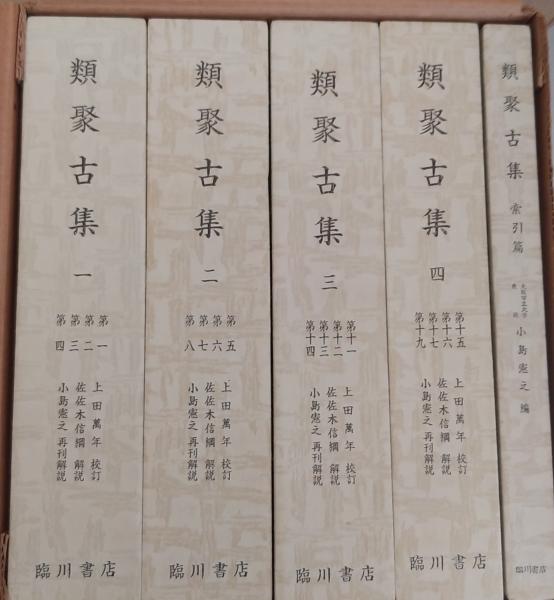 類聚古集 一
第一
第二
第三
第四
上田萬年 校訂
佐佐木信綱 解説
小島憲之 再刊解説
臨川書店
類聚古集 二
第五
第六
第七
第八
上田萬年 校訂
佐佐木信綱 解説
小島憲之 再刊解説
臨川書店
類聚古集 三
第十一
第十二
第十三
第十四
上田萬年 校訂
佐佐木信綱 解説
小島憲之 再刊解説
臨川書店
類聚古集 四
第十五
第十六
第十七
第十九
上田萬年 校訂
佐佐木信綱 解説
小島憲之 再刊解説
臨川書店
類聚古集 索引篇
大阪市立大学
教授
小島憲之 編
臨川書店